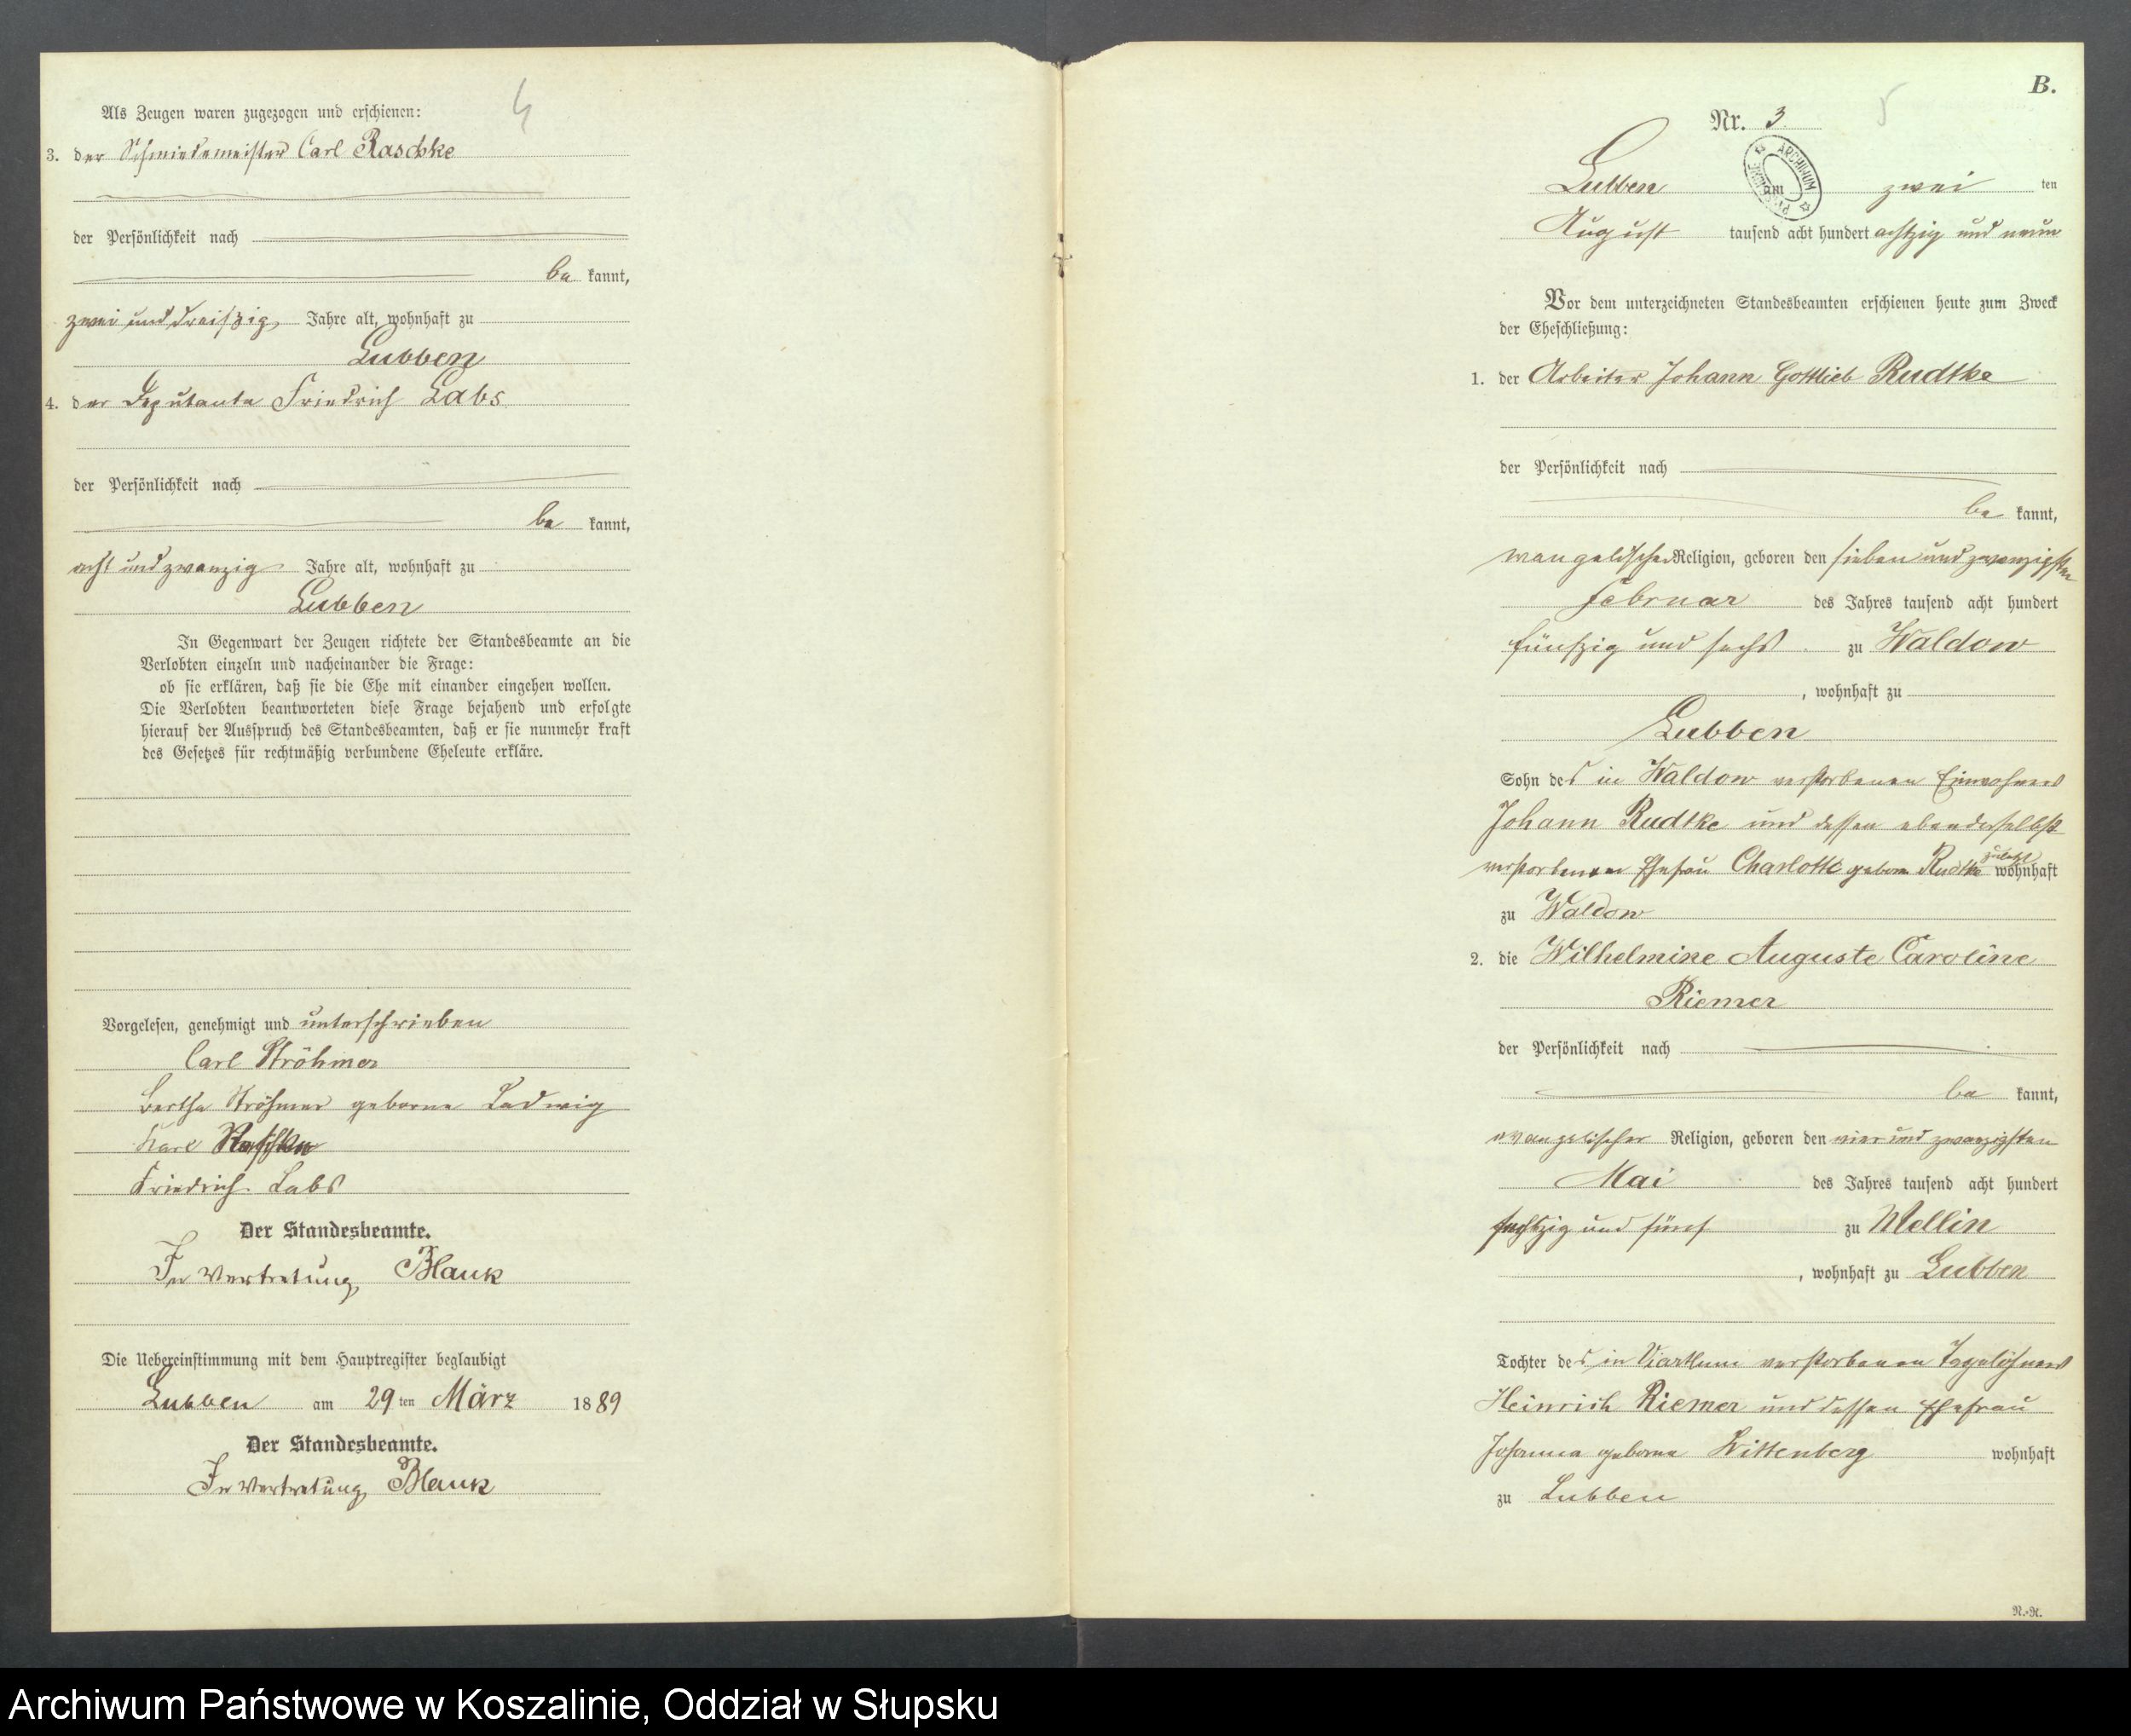 4
Als Zeugen waren zugezogen und erschienen:
3. der Schmiedemeister Carl Raschke
der Persönlichkeit nach
be kannt,
zwei und dreißzig Jahre alt, wohnhaft zu
Lubben
4. der Deputante Friedrich Labs
der Persönlichkeit nach
be kannt,
acht und zwanzig Jahre alt, wohnhaft zu
Lubben
In Gegenwart der Zeugen richtete der Standesbeamte an die
Verlobten einzeln und nacheinander die Frage:
ob sie erklären, daß sie die Ehe mit einander eingehen wollen.
Die Verlobten beantworteten diese Frage bejahend und erfolgte
hierauf der Ausspruch des Standesbeamten, daß er sie nunmehr kraft
des Gesetzes für rechtmäßig verbundene Eheleute erkläre.
Vorgelesen, genehmigt und unterschrieben
Carl Ströhmer
Bertha Ströhmer geborne Ladwig
Karl Raschke
Friedrich Labs
Der Standesbeamte.
In Vertretung Blank
Die Uebereinstimmung mit dem Hauptregister beglaubigt
Lubben am 29 ten März 1889
Der Standesbeamte.
In Vertretung Blank
B.
5
Nr. 3
Lubben am zwei ten
August tausend acht hundert achtzig und neun
Vor dem unterzeichneten Standesbeamten erschienen heute zum Zweck
der Eheschließung:
1. der Arbeiter Johann Gottlieb Rudtke
der Persönlichkeit nach
be kannt,
evangelischer Religion, geboren den sieben und zwanzigsten
Februar des Jahres tausend acht hundert
fünfzig und sechs zu Waldow
, wohnhaft zu
Lubben
Sohn des in Waldow verstorbenen Einwohners
Johann Rudtke und dessen ebenderselbst
verstorbenen Ehefrau Charlotte geborne Rudtke zuletzt wohnhaft
zu Waldow
2. die Wilhelmine Auguste Caroline
Riemer
der Persönlichkeit nach
be kannt,
evangelischer Religion, geboren den vier und zwanzigsten
Mai des Jahres tausend acht hundert
sechszig und fünf zu Mellin
, wohnhaft zu Lubben
Tochter des in Viartlum verstorbenen Tagelöhners
Heinrich Riemer und dessen Ehefrau
Johanna geborne Wittenberg wohnhaft
zu Lubben
N.-N.
Archiwum Państwowe w Koszalinie, Oddział w Słupsku